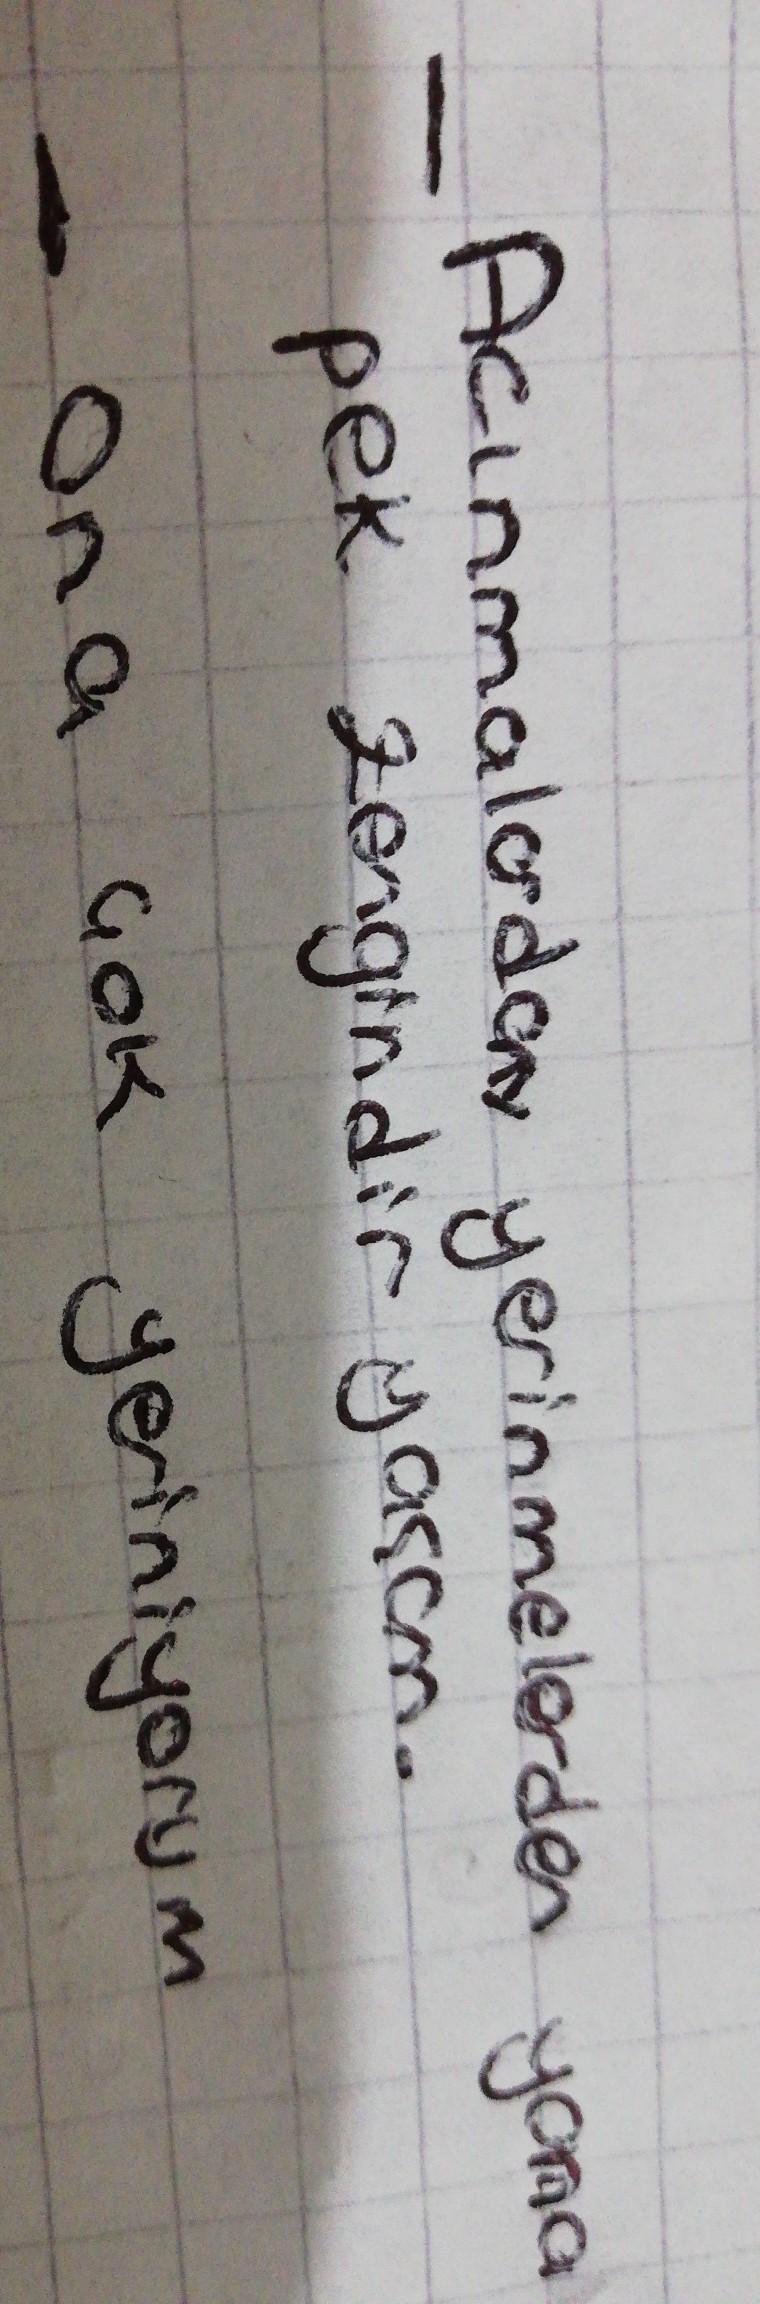 - Acınmalardan yerinmelerden yana
pek zengindir yazım.
- Ona çok yeriniyorum